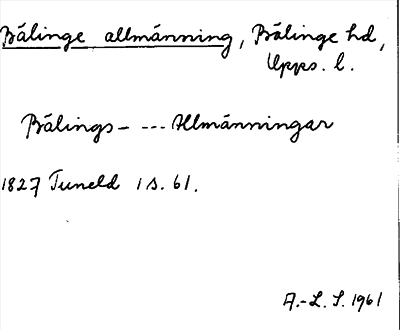 Bälinge allmänning, Bälinge hd,
Upps. l.
Bälings- --- Allmänningar
1827 Tuneld 1 s. 61.
A.-L. S. 1961